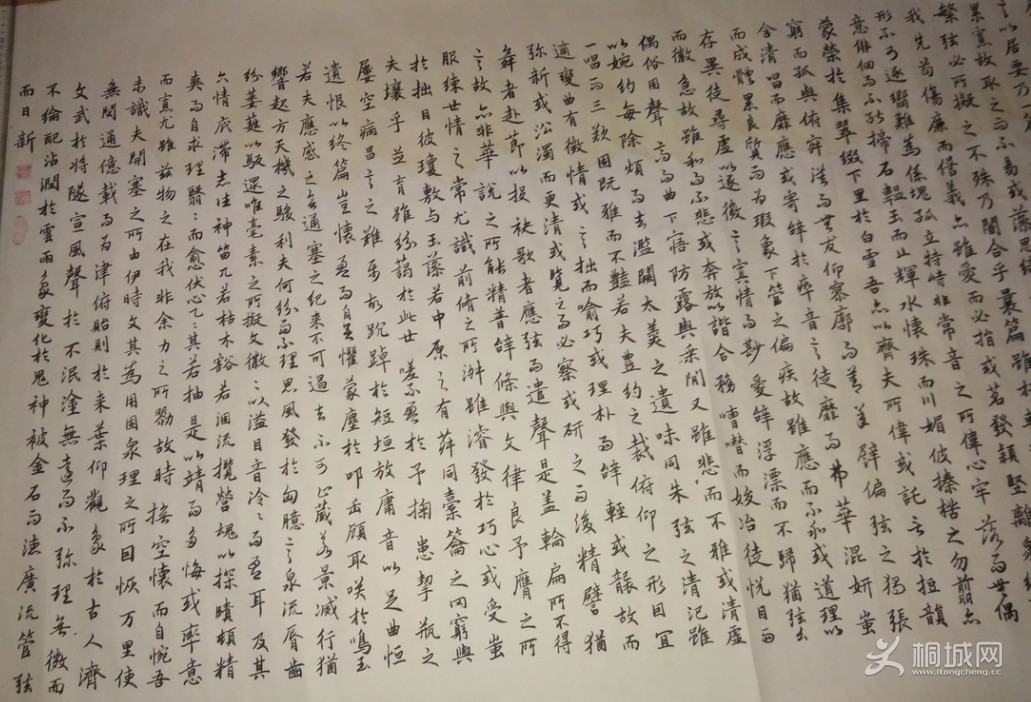 言以居要乃
累寡故取之而不易或藻思綺
繁弦必所擬之不殊乃闇合乎曩篇雖杼
我先苟傷廉而愆義亦雖愛而必捐或苕發穎堅離
形不可逐響難為係塊孤立特峙非常音之所偉心牢落而無偶
意徘徊而不能揥石韞玉而山輝水懷珠而川媚彼榛楛之勿翦亦
蒙榮於集翠綴下里於白雪吾亦以濟夫所偉或託言於短韻
窮而孤興俯寂漠而無友仰寥廓而莫承譬偏弦之獨張
含清唱而靡應或寄辭於瘁音言徒靡而弗華混妍蚩
而成體累良質而為瑕象下管之偏疾故雖應而不和或遺理以
存異徒尋虛以逐微言寡情而鮮愛辭浮漂而不歸猶弦幺
而徽急故雖和而不悲或奔放以諧合務嘈囋而妖冶徒悅目而
偶俗固聲高而曲下寤防露與桑間又雖悲而不雅或清虛
以婉約每除煩而去濫闕大羹之遺味同朱弦之清氾雖
一唱而三歎固既雅而不豔若夫豐約之裁俯仰之形因宜
適變曲有微情或言拙而喻巧或理朴而辭輕或襲故而
彌新或沿濁而更清或覽之而必察或研之而後精譬猶
舞者赴節以投袂歌者應弦而遣聲是蓋輪扁所不得
言故亦非華說之所能精普辭條與文律良予膺之所
服練世情之常尤識前脩之所淑雖濬發於巧心或受蚩
於拙目彼瓊敷與玉藻若中原之有菽同橐籥之罔窮與
天壤乎並育雖紛藹於此世嗟不盈於予掬患挈瓶之
屢空病昌言之難屬故踸踔於短垣放庸音以足曲恒
遺恨以終篇豈懷盈而自足懼蒙塵於叩缶顧取笑於鳴玉
若夫應感之會通塞之紀來不可遏去不可止藏若景滅行猶
響起方天機之駿利夫何紛而不理思風發於胸臆言泉流脣齒
紛葳蕤以馺遝唯毫素之所擬文徽徽以溢目音泠泠而盈耳及其
六情底滯志往神留兀若枯木豁若涸流攬營魂以探賾頓精
爽而自求理翳翳而愈伏心乙乙其若抽是以竭情而多悔或率意
而寡尤雖茲物之在我非余力之所勠故時撫空懷而自惋吾
未識夫開塞之所由伊茲文其為用固眾理之所因恢万里使
無閡通億載而為津俯貽則於來葉仰觀象於古人濟
文武於將墜宣風聲於不泯塗無遠而不彌理無微而
不綸配沾潤於雲雨象變化於鬼神被金石而德廣流管弦
而日新
桐城网
www.itongcheng.cc